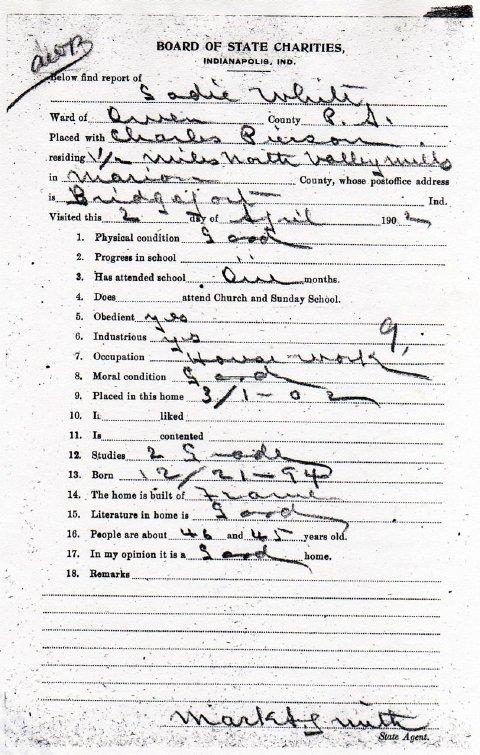 BOARD OF STATE CHARITIES,
INDIANAPOLIS, IND.
Below find report of
Sadie White
Ward of Owen County P. A.
Placed with Charles Pierson
residing 1/2 miles North Valley Mills
in Marion County, whose postoffice address
is Bridgeport Ind.
Visited this 2 day of April 1902
1. Physical condition Good
2. Progress in school "
3. Has attended school One months.
4. Does attend Church and Sunday School.
5. Obedient yes
6. Industrious yes
9,
7. Occupation House work
8. Moral condition Good
9. Placed in this home 3/1-02
10. It liked
11. Is contented
12. Studies 2 Grade
13. Born 12/21-94
14. The home is built of Frame
15. Literature in home is Good
16. People are about 46 and 45 years old.
17. In my opinion it is a Good home.
18. Remarks
State Agent.